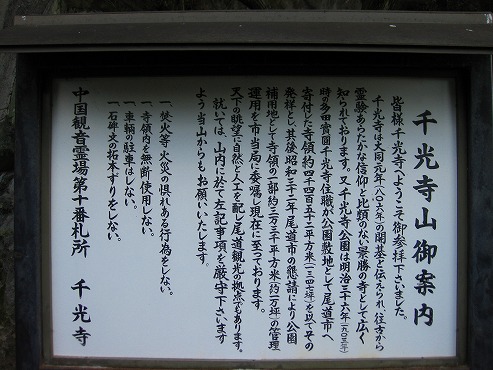 千光寺山御案内
皆様千光寺へようこそ御参拝下さいました。
千光寺は大同元年(八〇六年)の開基と伝えられ、往古から
霊験あらたかな信仰と比類のない景勝の寺として広く
知られております。又千光寺公園は明治三十六年(一九〇三年)
時の多田實圓千光寺住職が公園敷地として尾道市へ
寄付した寺領約四千四百五十二平方米(一三四七坪)を以てその
発祥とし其後昭和三十二年尾道市の懇請により公園
補用地として寺領の一部約三万三千平方米(約一万坪)の管理
運用を市当局に委嘱し現在に至っております。
天下の眺望で自然と人工を配し尾道観光の拠点でもあります。
就いては、山内に於て左記事項を厳守下さいます
よう当山からもお願いいたします。
一、焚火等火災の惧れある行為をしない。
一、寺領内を無断使用しない。
一、車輌の駐車はしない。
一、石碑文の拓本すりをしない。
中国観音霊場第十番札所 千光寺